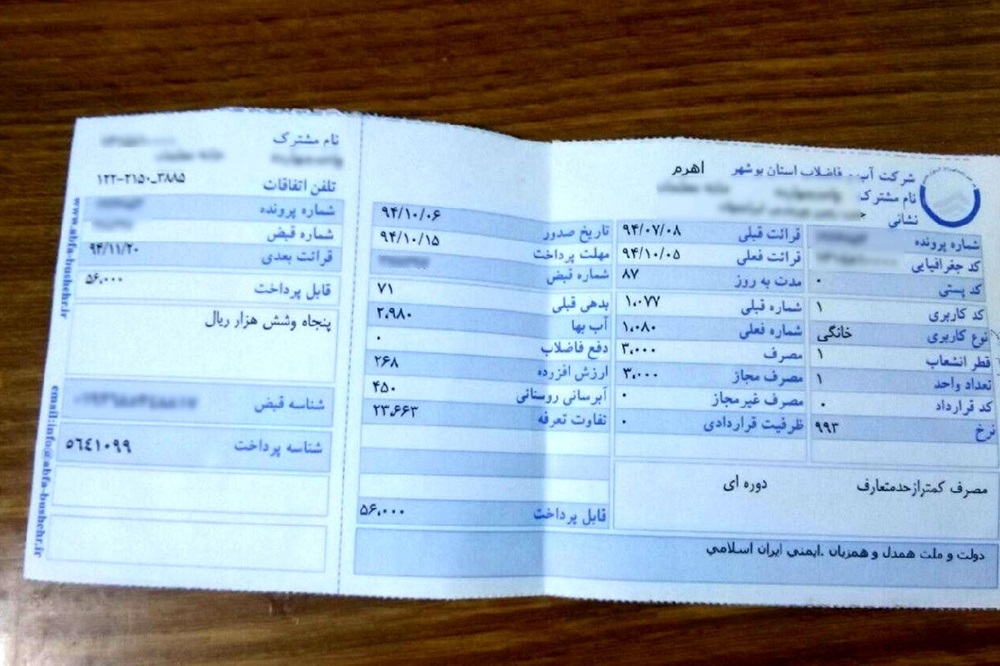 شرکت آب و فاضلاب استان بوشهر اهرم
نام مشترک
نشانی
شماره پرونده
کد جغرافیایی
کد پستی ۰
کد کاربری ۱
نوع کاربری خانگی
قطر انشعاب ۱
تعداد واحد ۱
کد قرارداد ۰
نرخ ۹۹۳
قرائت قبلی ۹۴/۰۷/۰۸
قرائت فعلی ۹۴/۱۰/۰۵
مدت به روز ۸۷
شماره قبلی ۱،۰۷۷
شماره فعلی ۱،۰۸۰
مصرف ۳،۰۰۰
مصرف مجاز ۳،۰۰۰
مصرف غیرمجاز ۰
ظرفیت قراردادی ۰
تاریخ صدور ۹۴/۱۰/۰۶
مهلت پرداخت ۹۴/۱۰/۱۵
شماره قبض
بدهی قبلی ۷۱
آب بها ۲،۹۸۰
دفع فاضلاب ۰
ارزش افزرده ۲۶۸
آبرسانی روستائی ۴۵۰
تفاوت تعرفه ۲۳،۶۶۳
قابل پرداخت ۵۶،۰۰۰
مصرف کمترازحدمتعارف دوره ای
دولت و ملت همدل و همزبان .ایمنی ایران اسلامي
نام مشترک
تلفن اتفاقات ۱۲۲-۲۱۵۰_۳۸۸۵
شماره پرونده
شماره قبض
قرائت بعدی ۹۴/۱۱/۲۰
قابل پرداخت ۵۶،۰۰۰
پنجاه وشش هزار ریال
شناسه قبض
شناسه پرداخت ٥٦٤١٠٩٩
www.abfa-bushehr.ir
email:info@abfa-bushehr.ir